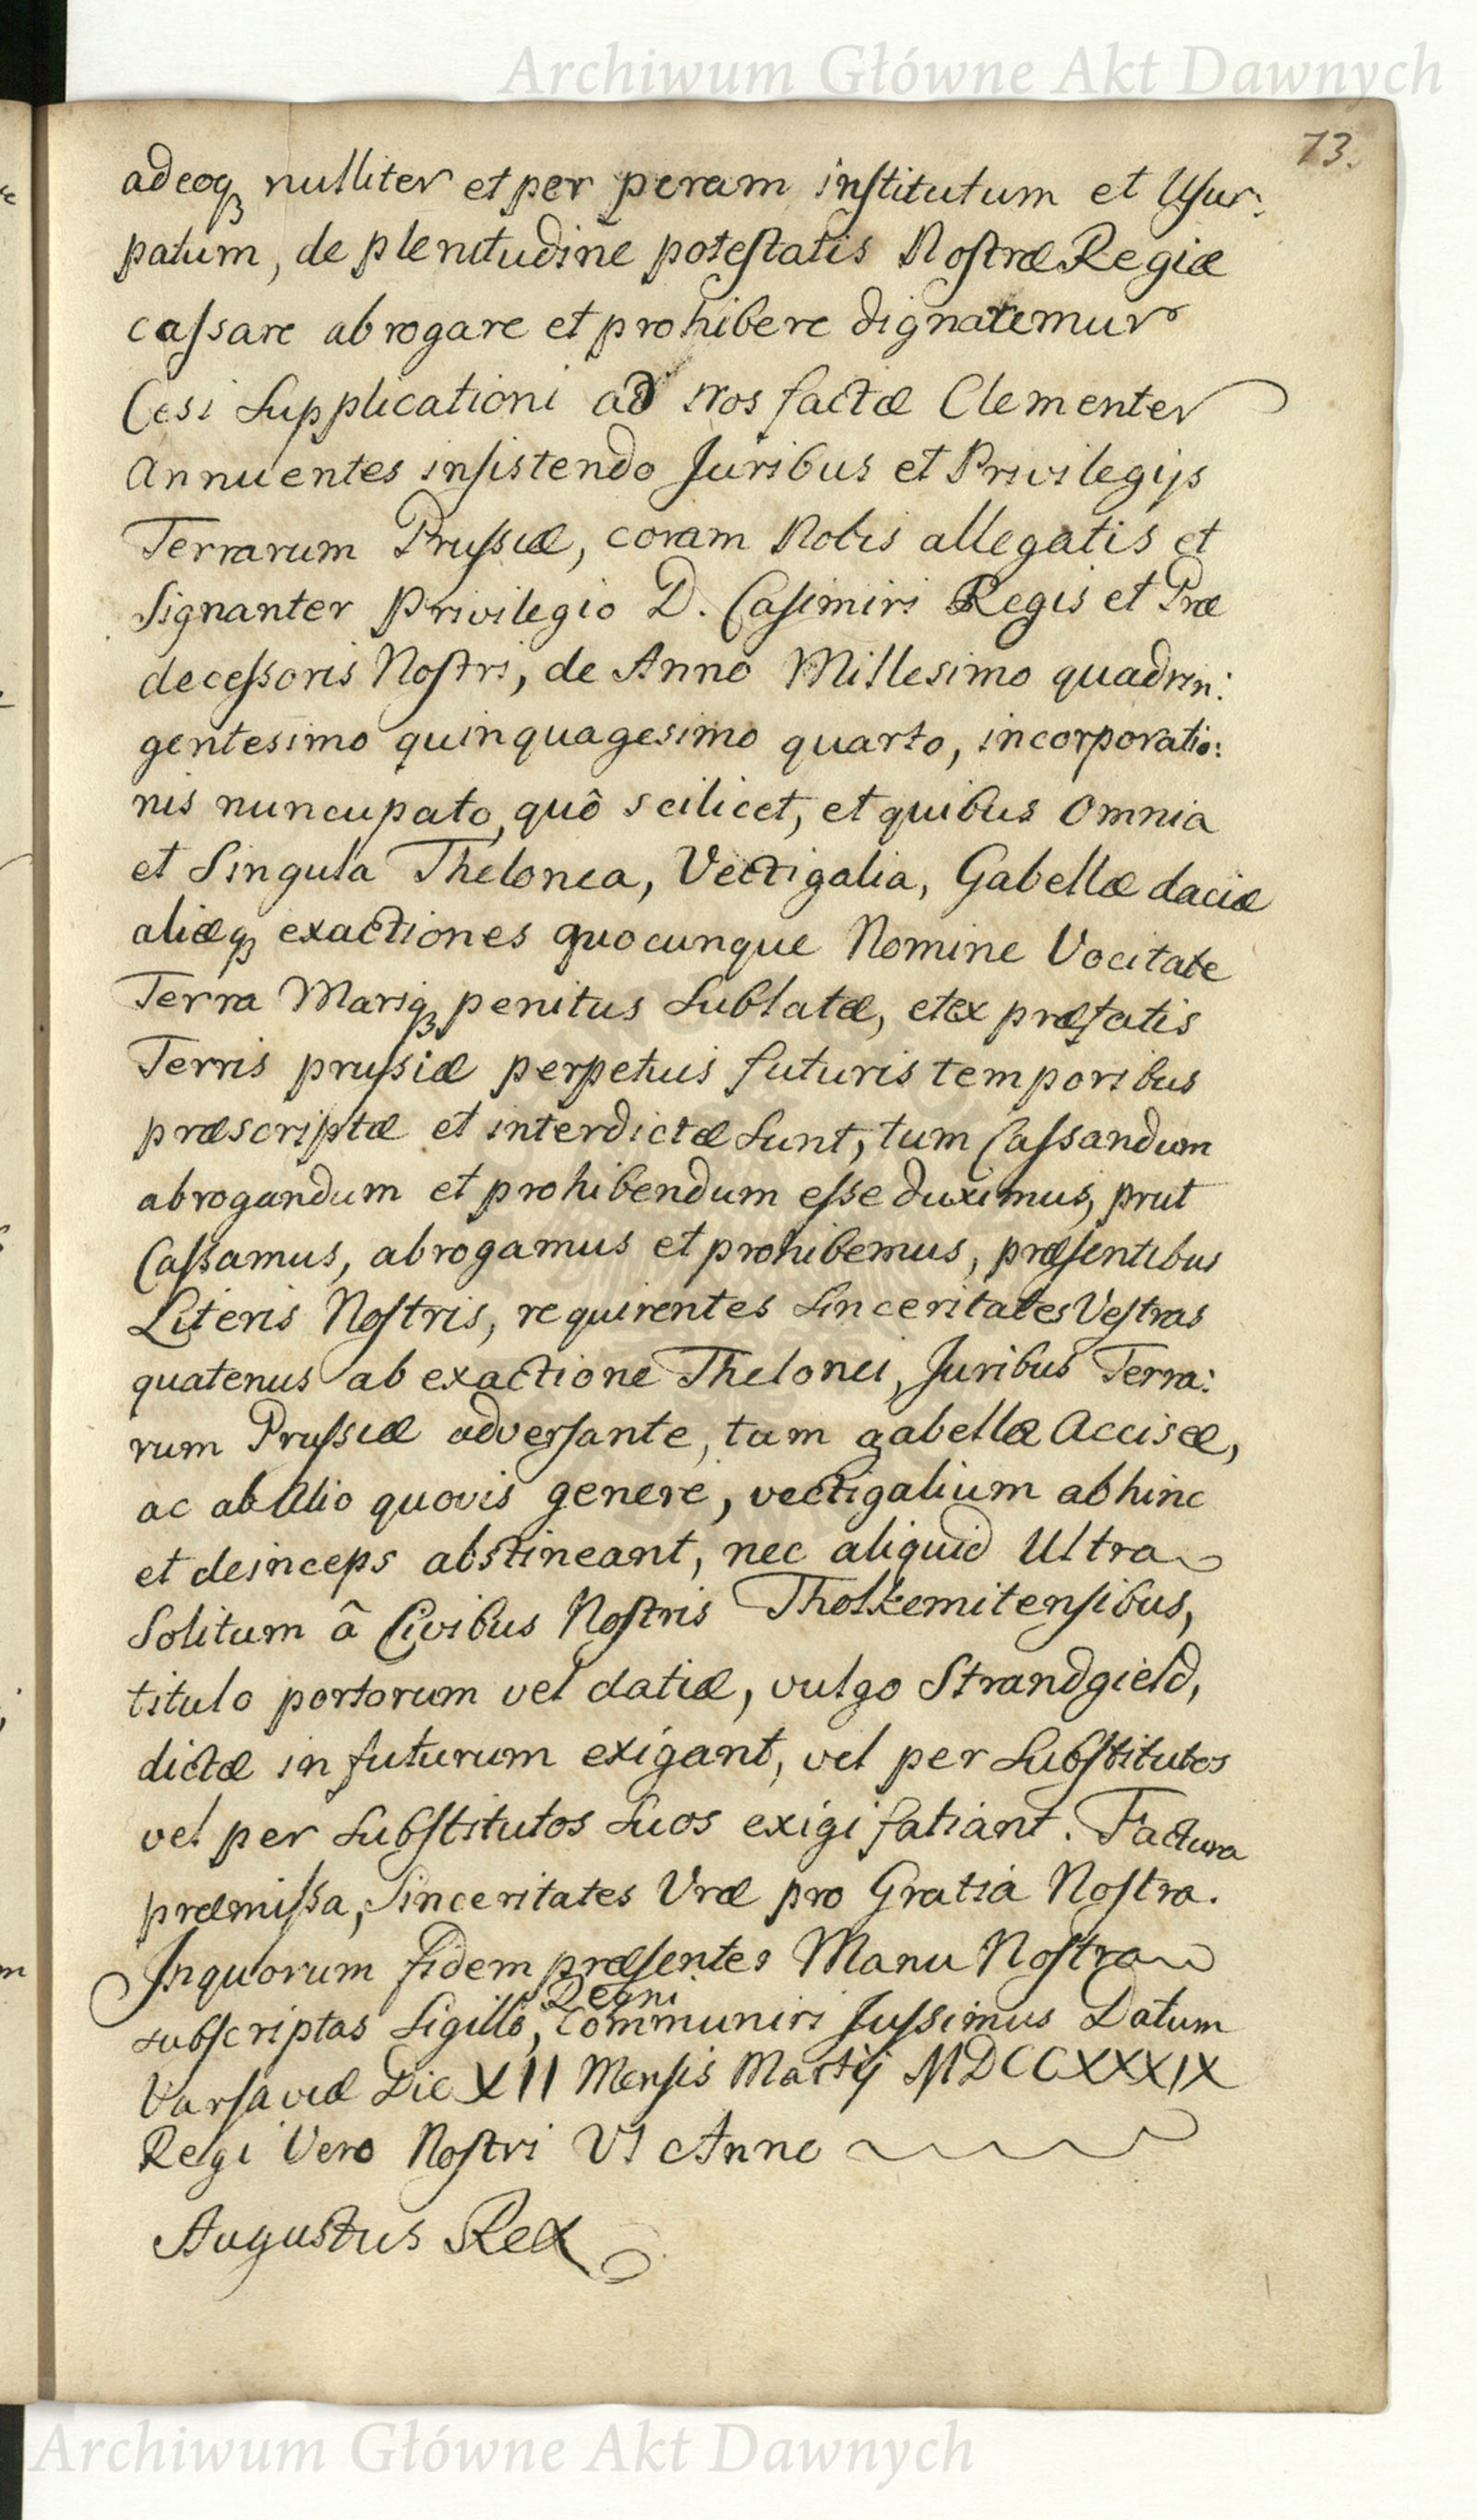 Archiwum Główne Akt Dawnych
73.
adeoq₃ nulliter et per peram institutum et Usur:
patum, de plenitudine potestatis Nostræ Regiæ
cassare abrogare et prohibere dignaremur
Cesi Supplicationi ad Nos factæ Clementer
Annuentes insistendo Juribus et Privilegijs
Terrarum Prussiæ, coram Nobis allegatis et
Signanter Privilegio D. Casimiri Regis et Præ
decessoris Nostri, de Anno Millesimo quadrin:
gentesimo quinquagesimo quarto, incorporatio:
nis nuncupato, quô scilicet, et quibus Omnia
et Singula Thelonea, Vectigalia, Gabellæ daciæ
aliæq₃ exactiones quocunque Nomine Vocitate
Terra Mariq₃ penitus Sublatæ, et ex præfatis
Terris prussiæ perpetuis futuris temporibus
præscriptæ et interdictæ Sunt, tum Cassandum
abrogandum et prohibendum esse duximus, prut
Cassamus, abrogamus et prohibemus, præsentibus
Literis Nostris, requirentes Sinceritates Vestras
quatenus ab exactione Thelonei, Juribus Terra:
rum Prussiæ adversante, tam gabellæ Accisæ,
ac ab Alio quovis genere, vectigalium abhinc
et deinceps abstineant, nec aliquid Ultra
Solitum â Civibus Nostris Tholkemitensibus,
titulo portorum vel datiæ, vulgo Strandgield,
dictæ in futurum exigant, vel per Substitutos
vel per Substitutos Suos exigi fatiant. Factura
præmissa, Sinceritates Vræ pro Gratia Nostra.
In quorum fidem præsentes Manu Nostra
subscriptas Sigillo, Regni Communiri Jussimus Datum
Varsaviæ Die XII Mensis Martij MDCCXXXIX
Regi Vero Nostri VI Anno
Augustus Rex
Archiwum Główne Akt Dawnych